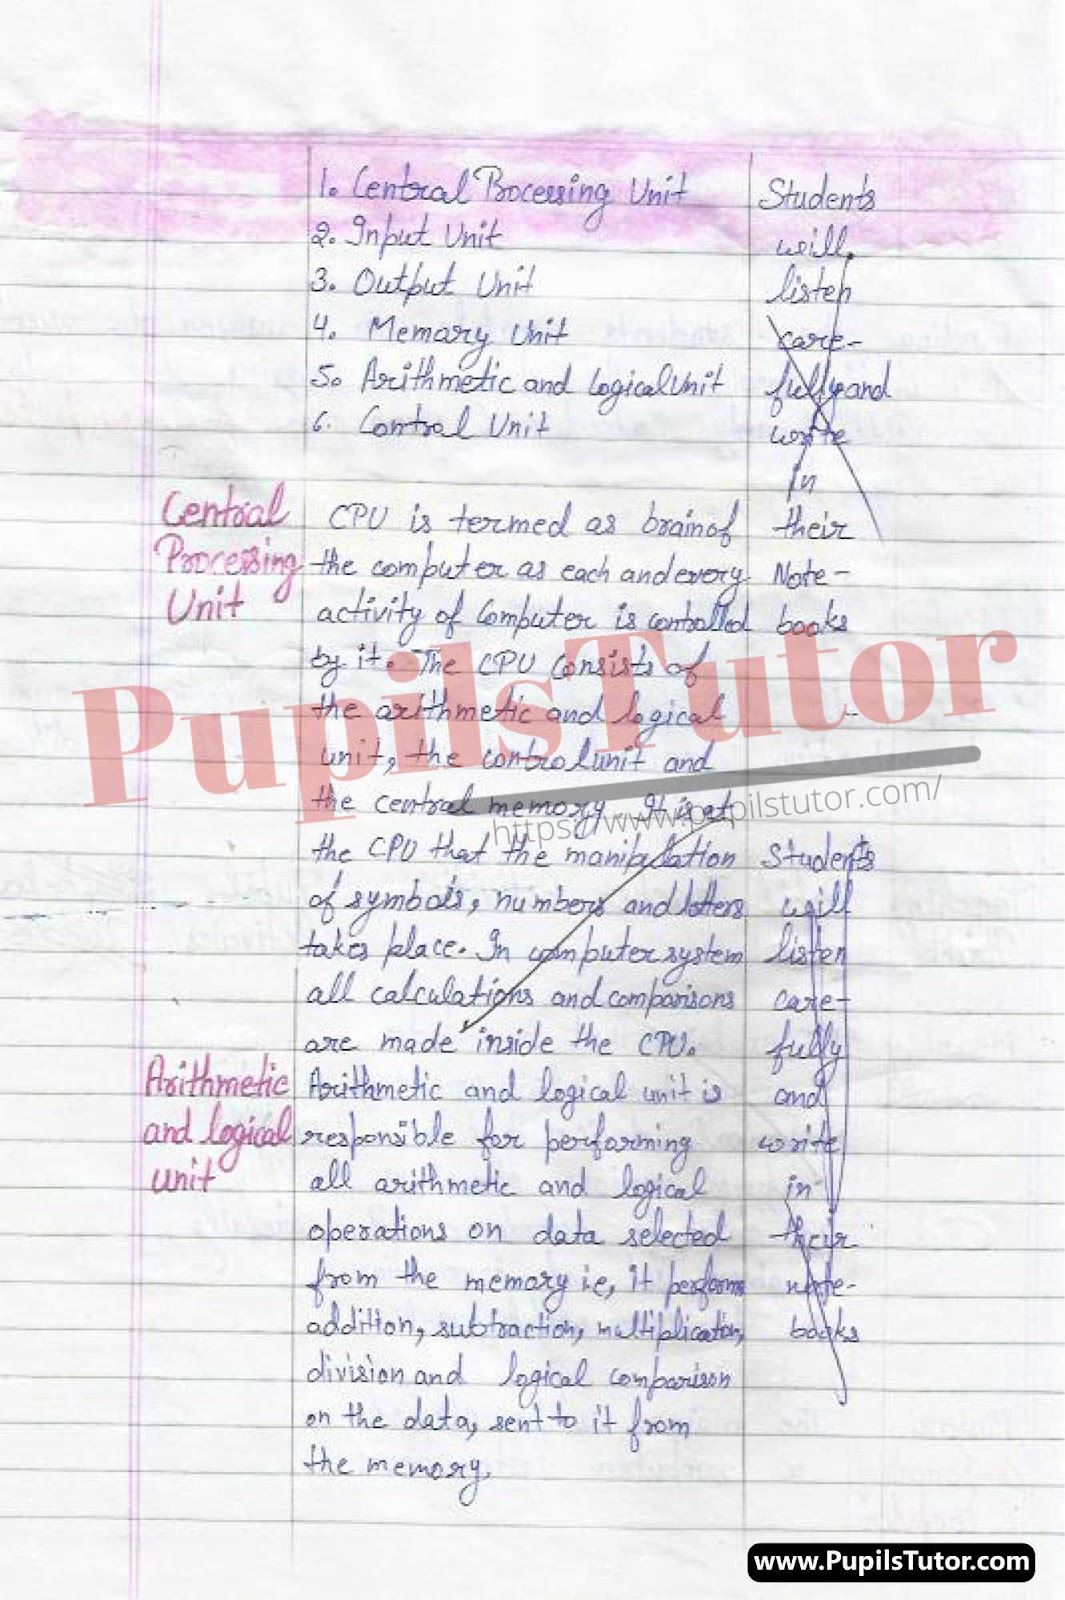 1. Central Processing Unit
2. Input Unit
3. Output Unit
4. Memory Unit
5. Arithmetic and logical Unit
6. Control Unit
Students
will
listen
care-
fully and
write
in
their
Note-
books
Central
Processing
Unit
CPU is termed as brain of
the computer as each and every
activity of Computer is controlled
by it. The CPU Consists of
the arithmetic and logical
unit, the control unit and
the central memory. It is at
the CPU that the manipulation
of symbols, numbers and letters
takes place. In computer system
all calculations and comparisons
are made inside the CPU.
Students
will
listen
care-
fully
and
write
in
their
note-
books
Arithmetic
and logical
unit
Arithmetic and logical unit is
responsible for performing
all arithmetic and logical
operations on data selected
from the memory ie, it performs
addition, subtraction, multiplication,
division and logical comparison
on the data, sent to it from
the memory.
PupilsTutor
https://www.pupilstutor.com/
www.PupilsTutor.com